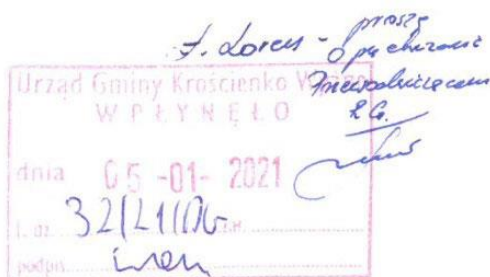 J. Lorens - proszę
o przekazanie
Przewodniczącemu
R.G.
Urząd Gminy Krościenko
WPŁYNĘŁO
dnia 05 -01- 2021
L. dz. 32/21/OG
podpis